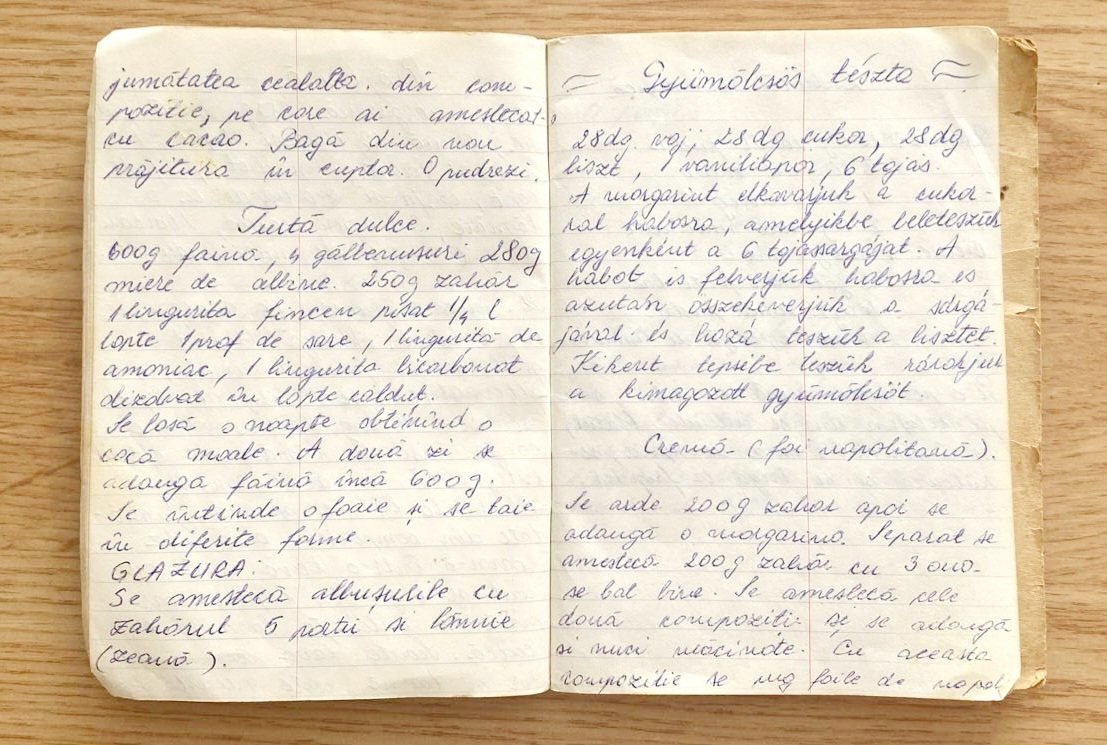 jumătatea cealaltă. din com-
poziție, pe care ai amestecat-o
cu cacao. Bagă din nou
prăjitura în cuptor. O pudrezi.
Turtă dulce.
600g faină, 4 gălbenușuri 280g
miere de albine. 250g zahăr
1 linguriță pisat 1/4 l
lapte 1 praf de sare, 1 linguriță de
amoniac, 1 linguriță bicarbonat
dizolvat în lapte călduț.
Se lasă o noapte obținînd o
cocă moale. A doua zi se
adaugă făină încă 600g.
Se întinde o foaie și se taie
în diferite forme.
GLAZURA:
Se amestecă albușurile cu
zahărul 5 părți și lămîie
(zeamă).
Gyümölcsös tészta
28dg. vaj, 28dg cukor, 28dg
liszt, 1 vaniliapor, 6 tojás.
A margarint elkavarjuk a cukor-
ral habosra, amelyikbe beleteszük
egyenként a 6 tojássárgáját. A
habot is felverjük habosra és
azután összekeverjük a sárgá-
jával és hozá teszük a lisztet.
Kikent tepsibe teszük rárakjuk
a kimagozott gyümölcsöt.
Cremă (foi napolitană).
Se arde 200g zahăr apoi se
adaugă o margarină. Separat se
amestecă 200g zahăr cu 3 ouă-
se bat bine. Se amestecă cele
două compoziții și se adaugă
și nuci măcinate. Cu aceasta
compoziție se ung foile de napol